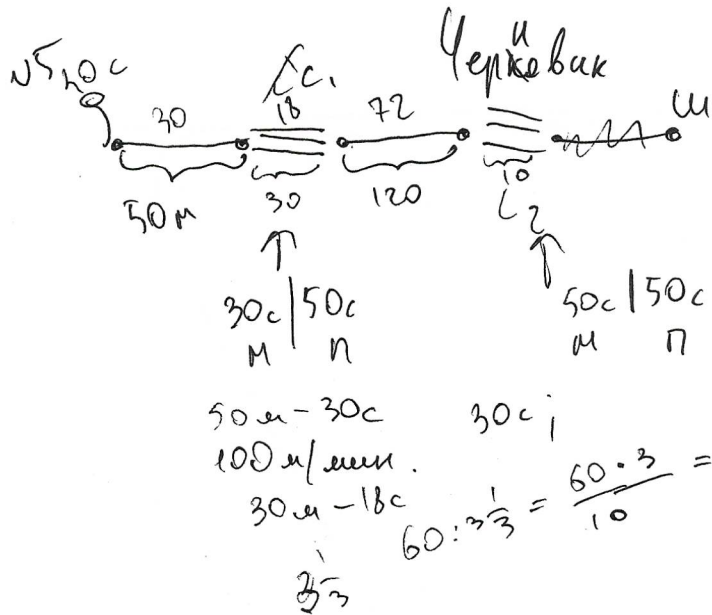 Черновик
и
N5 20с
C1
30 18 72 Ш
50м 30 120 10
L2
30с | 50с 50с | 50с
м п м п
50м - 30с 30с
100м/мин.
30м - 18с
60 : 3 1/3 = 60 · 3 / 10 =
3 1/3